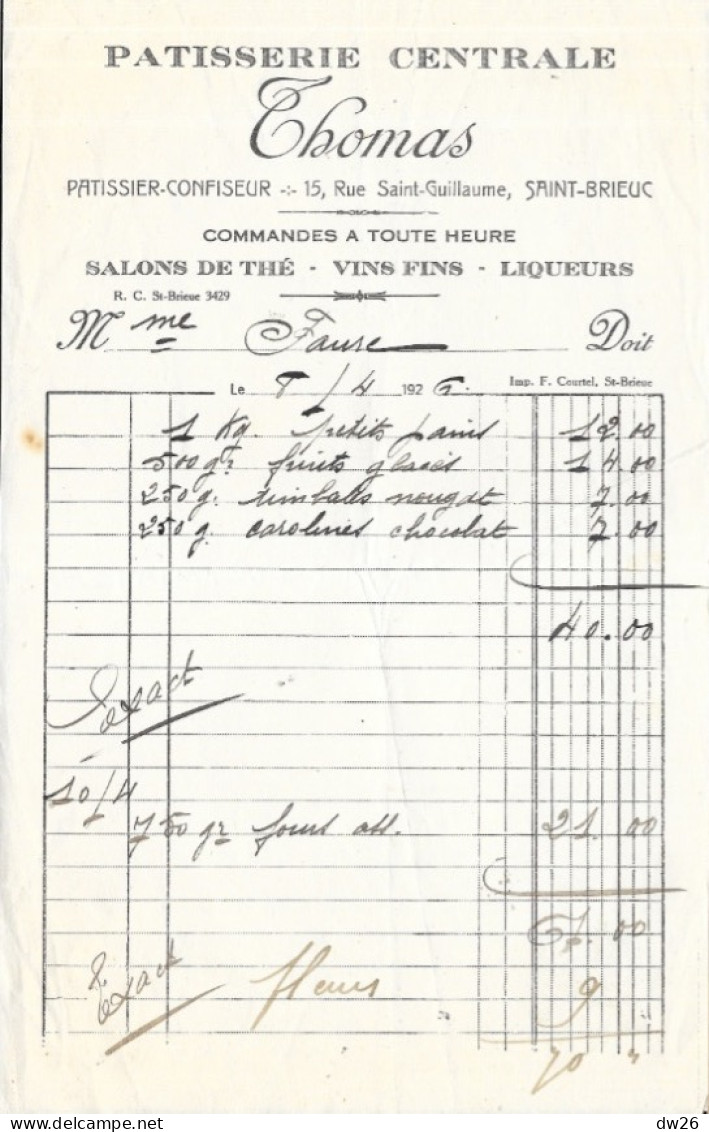 PATISSERIE CENTRALE
Thomas
PATISSIER-CONFISEUR -:- 15, Rue Saint-Guillaume, SAINT-BRIEUC
COMMANDES A TOUTE HEURE
SALONS DE THÉ - VINS FINS - LIQUEURS
R. C. St-Brieuc 3429
Mme Faure Doit
Le 8/4 1926 Imp. F. Courtel, St-Brieuc
1 Kg. petits pains 12.00
500 gr fruits glacés 14.00
250 g. timbales nougat 7.00
250 g. carolines chocolat 7.00
40.00
exact
10/4
750 gr fours ass. 21.00
61.00
exact
fleurs 9
70 "
dw26